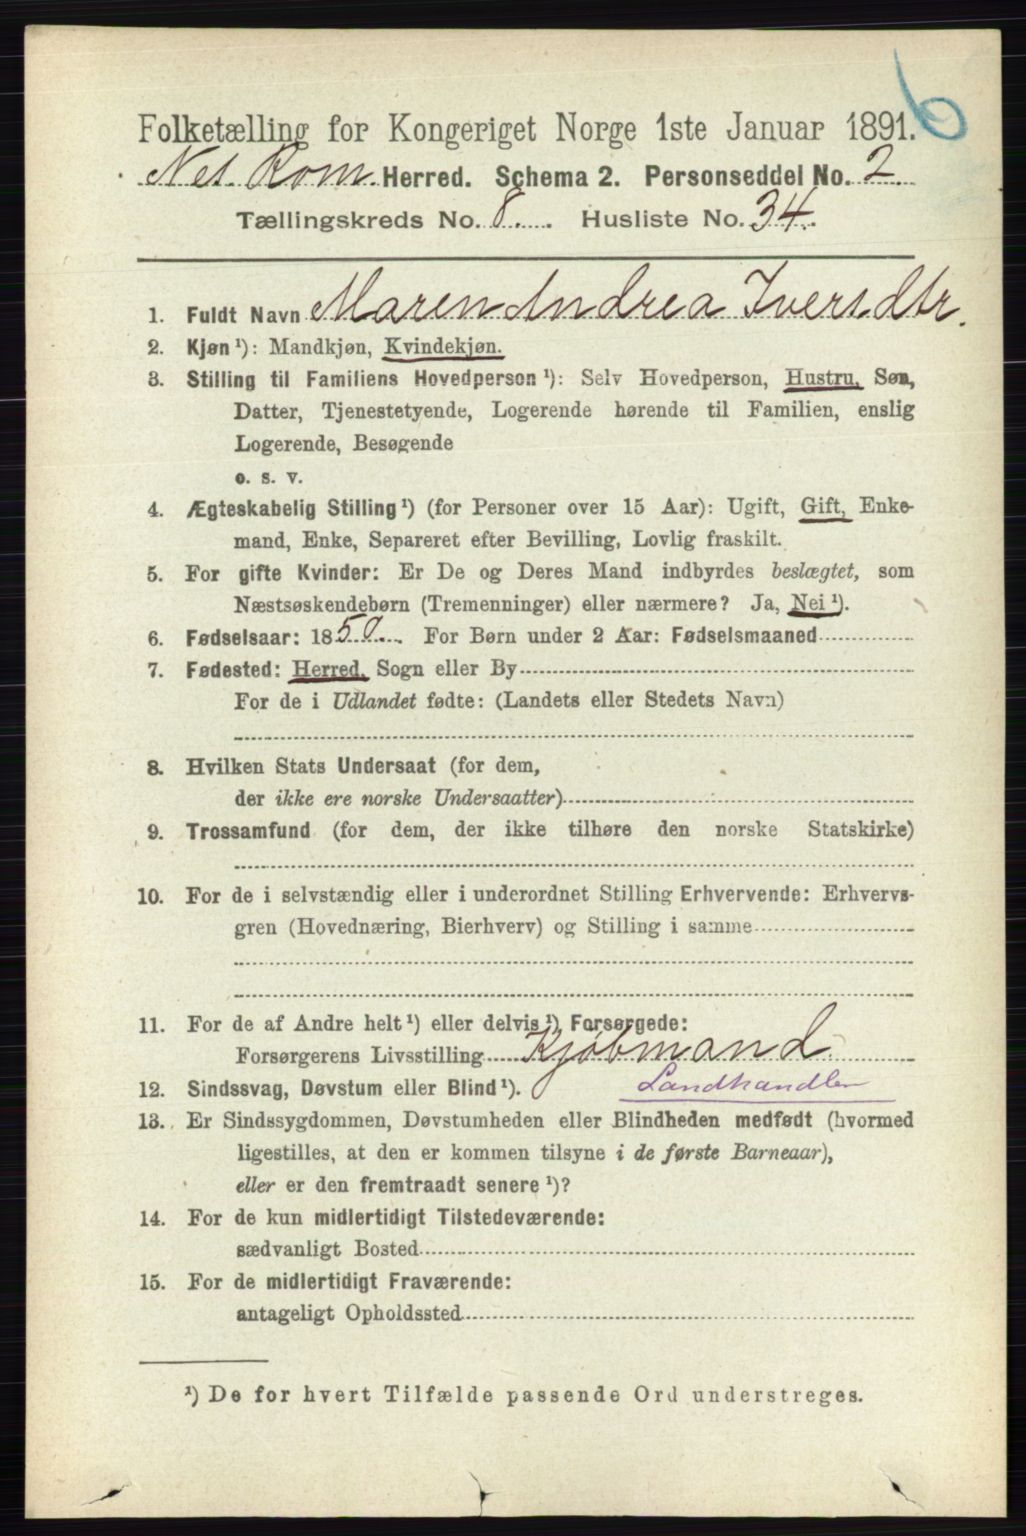 6
Folketælling for Kongeriget Norge 1ste Januar 1891.
Nes. Rom. Herred. Schema 2. Personseddel No. 2
Tællingskreds No. 8. Husliste No. 34.
1. Fuldt Navn Maren Andrea Iversdtr.
2. Kjøn ¹): Mandkjøn, Kvindekjøn.
3. Stilling til Familiens Hovedperson ¹): Selv Hovedperson, Hustru, Søn,
Datter, Tjenestetyende, Logerende hørende til Familien, enslig
Logerende, Besøgende
o. s. v.
4. Ægteskabelig Stilling ¹) (for Personer over 15 Aar): Ugift, Gift, Enke-
mand, Enke, Separeret efter Bevilling, Lovlig fraskilt.
5. For gifte Kvinder: Er De og Deres Mand indbyrdes beslægtet, som
Næstsøskendebørn (Tremenninger) eller nærmere? Ja, Nei ¹).
6. Fødselsaar: 1850. For Børn under 2 Aar: Fødselsmaaned
7. Fødested: Herred, Sogn eller By
For de i Udlandet fødte: (Landets eller Stedets Navn)
8. Hvilken Stats Undersaat (for dem,
der ikke ere norske Undersaatter)
9. Trossamfund (for dem, der ikke tilhøre den norske Statskirke)
10. For de i selvstændig eller i underordnet Stilling Erhvervende: Erhvervs-
gren (Hovednæring, Bierhverv) og Stilling i samme
11. For de af Andre helt ¹) eller delvis ¹) Forsørgede:
Forsørgerens Livsstilling Kjøbmand
12. Sindssvag, Døvstum eller Blind ¹). Landhandler
13. Er Sindssygdommen, Døvstumheden eller Blindheden medfødt (hvormed
ligestilles, at den er kommen tilsyne i de første Barneaar),
eller er den fremtraadt senere ¹)?
14. For de kun midlertidigt Tilstedeværende:
sædvanligt Bosted
15. For de midlertidigt Fraværende:
antageligt Opholdssted
¹) De for hvert Tilfælde passende Ord understreges.